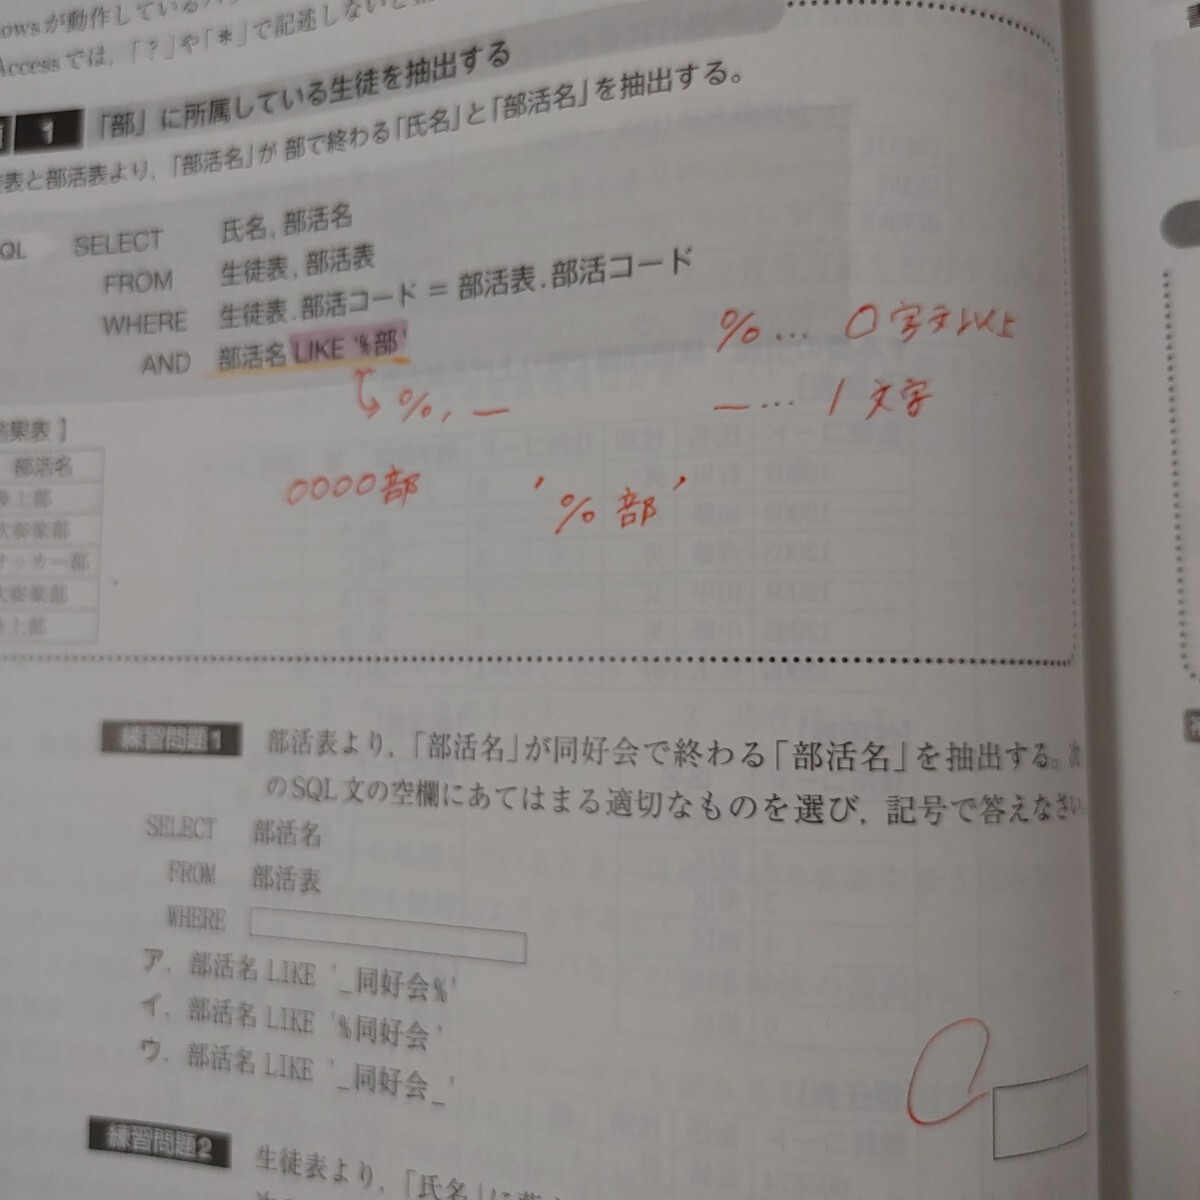 owsが動作している
Accessでは，「？」や「＊」で記述しないと
1 「部」に所属している生徒を抽出する
表と部活表より，「部活名」が 部で終わる「氏名」と「部活名」を抽出する。
QL SELECT 氏名, 部活名
FROM 生徒表, 部活表
WHERE 生徒表.部活コード = 部活表.部活コード
AND 部活名 LIKE '%部'
% ... 0字文以上
%, _
_ ... 1文字
0000部 '%部'
結果表】
部活名
上部
吹奏楽部
サッカー部
吹奏楽部
上部
練習問題1 部活表より，「部活名」が同好会で終わる「部活名」を抽出する。次
のSQL文の空欄にあてはまる適切なものを選び，記号で答えなさい
SELECT 部活名
FROM 部活表
WHERE
ア．部活名 LIKE '_同好会%'
イ．部活名 LIKE '%同好会'
ウ．部活名 LIKE '_同好会_'
練習問題2 生徒表より，「氏名」に